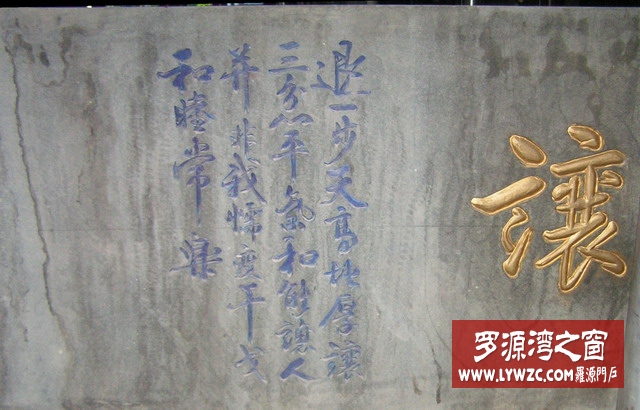 讓
退一步天高地厚讓
三分心平氣和能人
并非我懦变干戈
和睦常樂
罗源湾之窗
www.LYWZC.com 羅源門戶